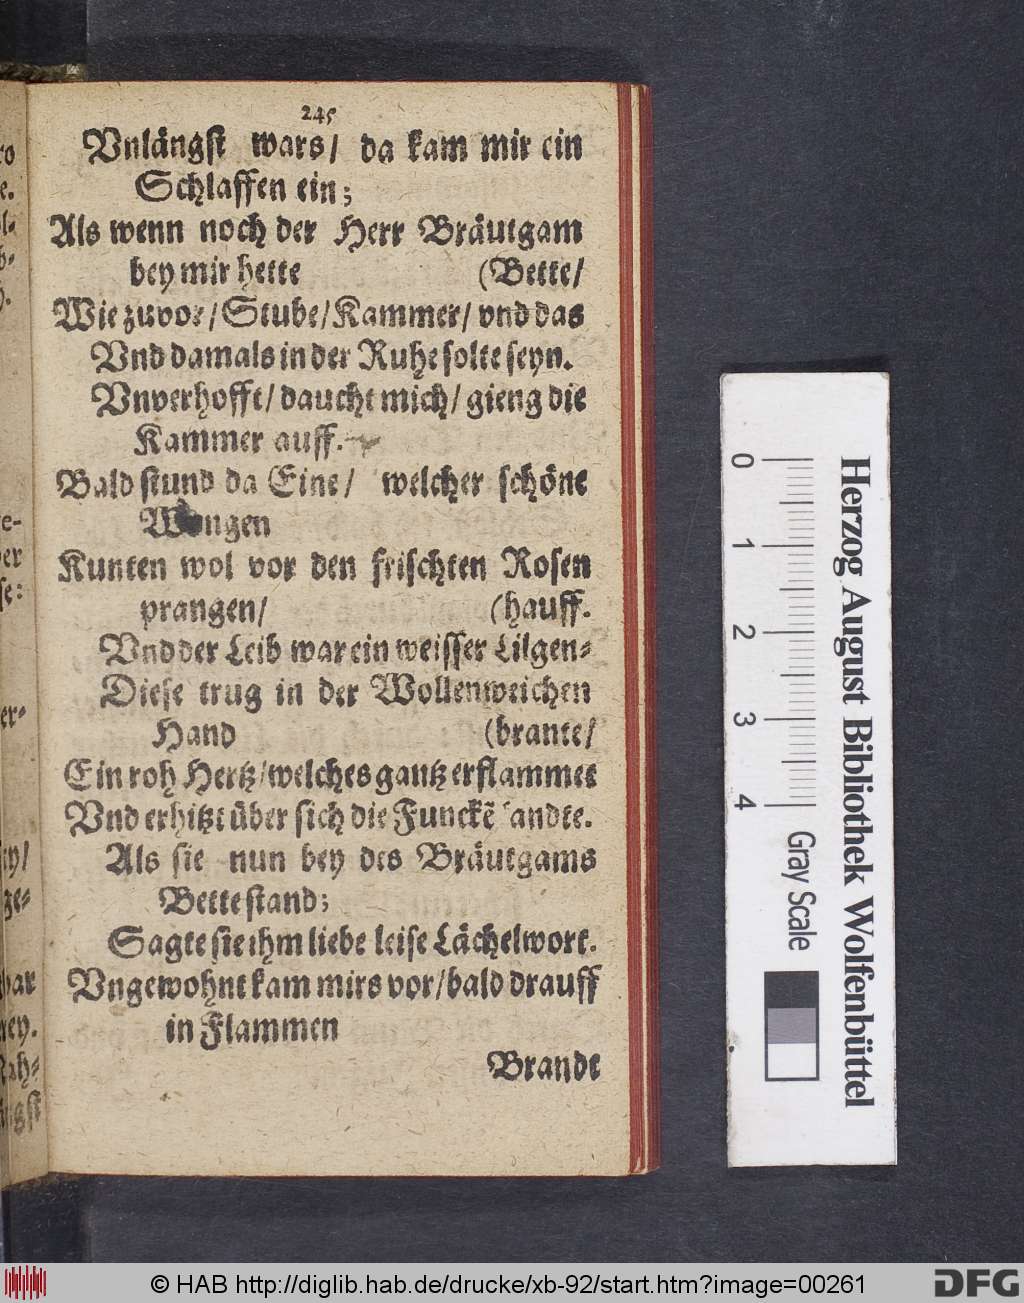 245
Vnlängst wars/ da kam mir ein
Schlaffen ein;
Als wenn noch der Herr Bräutgam
bey mir hette (Bette/
Wie zuvor/Stube/Kammer/vnd das
Vnd damals in der Ruhe solte seyn.
Vnverhofft/daucht mich/gieng die
Kammer auff.
Bald stund da Eine/ welcher schöne
Wangen
Kunten wol vor den frischten Rosen
prangen/ (hauff.
Vnd der Leib war ein weisser Lilgen-
Diese trug in der Wollenweichen
Hand (brante/
Ein roh Hertz/welches gantz erflammet
Vnd erhitzt über sich die Funckẽ sandte.
Als sie nun bey des Bräutgams
Bette stand;
Sagte sie ihm liebe leise Lächelwort.
Vngewohnt kam mirs vor/bald drauff
in Flammen
Brandt
0 1 2 3 4
Herzog August Bibliothek Wolfenbüttel
Gray Scale
© HAB http://diglib.hab.de/drucke/xb-92/start.htm?image=00261
DFG